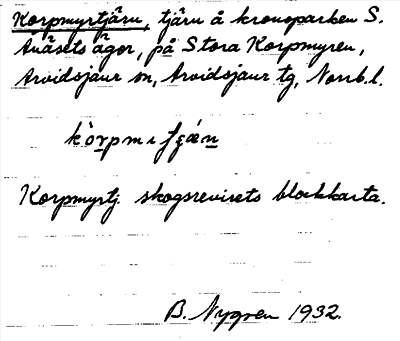 Korpmyrtjärn, tjärn å kronoparken S.
Anåsets ägor, på Stora Korpmyren,
Arvidsjaur sn, Arvidsjaur tg, Norrb. l.
Korpmyrtj. skogsrevirets blockkarta.
B. Nygren 1932.